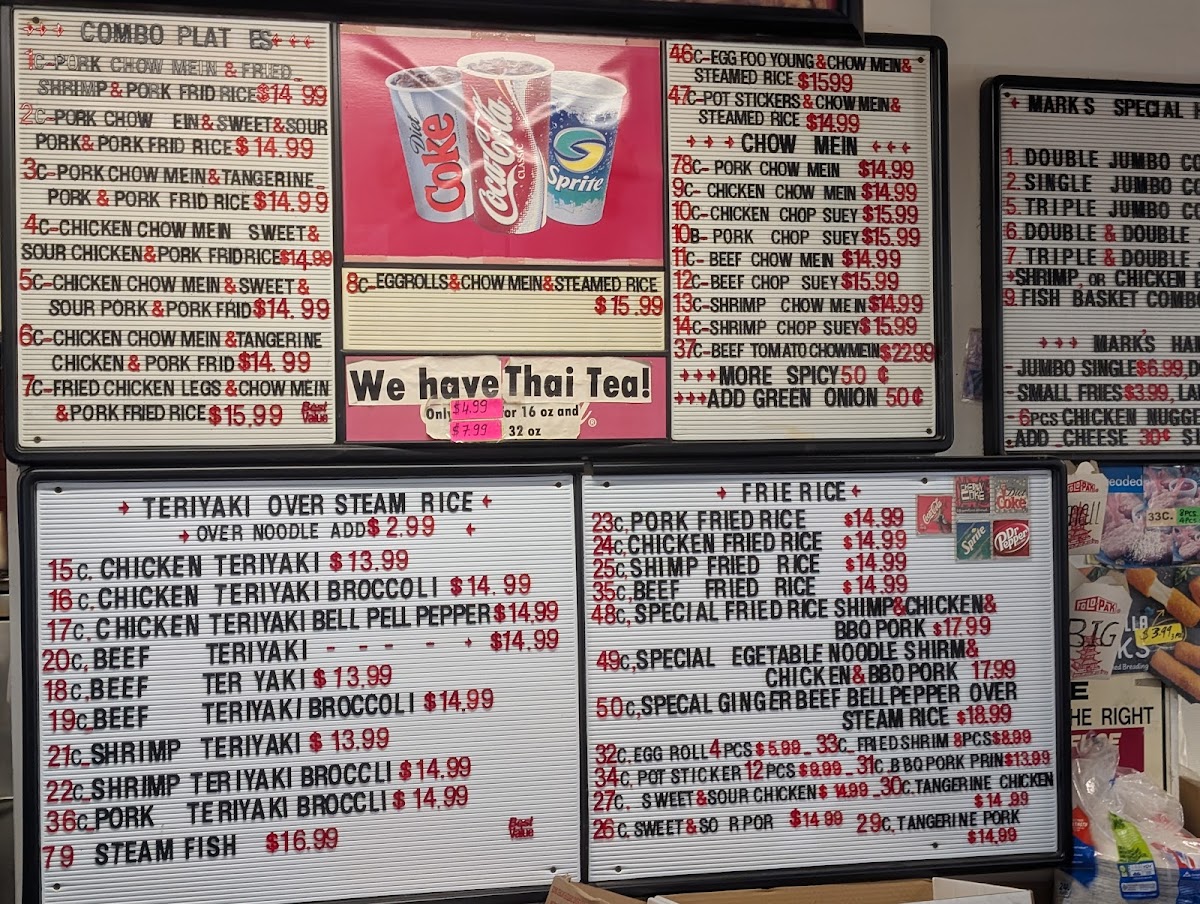 COMBO PLAT ES
1C-PORK CHOW MEIN & FRIED
SHRIMP & PORK FRID RICE $14 99
2C-PORK CHOW EIN & SWEET & SOUR
PORK & PORK FRID RICE $14.99
3C-PORK CHOW MEIN & TANGERINE
PORK & PORK FRID RICE $14.99
4C-CHICKEN CHOW MEIN SWEET &
SOUR CHICKEN & PORK FRID RICE $14.99
5C-CHICKEN CHOW MEIN & SWEET &
SOUR PORK & PORK FRID $14.99
6C-CHICKEN CHOW MEIN & TANGERINE
CHICKEN & PORK FRID $14.99
7C-FRIED CHICKEN LEGS & CHOW MEIN
& PORK FRIED RICE $15.99 Best Value
Diet Coke
Coca-Cola CLASSIC
Sprite
8C-EGGROLLS & CHOW MEIN & STEAMED RICE
$15.99
We have Thai Tea!
Only $4.99 for 16 oz and
$7.99 32 oz
46C-EGG FOO YOUNG & CHOW MEIN &
STEAMED RICE $1599
47C-POT STICKERS & CHOW MEIN &
STEAMED RICE $14.99
CHOW MEIN
78C- PORK CHOW MEIN $14.99
9C- CHICKEN CHOW MEIN $14.99
10C-CHICKEN CHOP SUEY $15.99
10B-PORK CHOP SUEY $15.99
11C-BEEF CHOW MEIN $14.99
12C-BEEF CHOP SUEY $15.99
13C-SHRIMP CHOW MEIN $14.99
14C-SHRIMP CHOP SUEY $15.99
37C-BEEF TOMATO CHOWMEIN $2299
MORE SPICY 50 ¢
ADD GREEN ONION 50 ¢
MARK S SPECIAL
1. DOUBLE JUMBO
2. SINGLE JUMBO
5. TRIPLE JUMBO
6. DOUBLE & DOUBLE
7. TRIPLE & DOUBLE
SHRIMP OR CHICKEN
9. FISH BASKET COMB
MARK'S HA
JUMBO SINGLE $6.99,D
SMALL FRIES $3.99, LA
6PCS CHICKEN NUGG
ADD CHEESE 30¢
TERIYAKI OVER STEAM RICE
OVER NOODLE ADD $2.99
15C. CHICKEN TERIYAKI $13.99
16C. CHICKEN TERIYAKI BROCCOLI $14.99
17C. CHICKEN TERIYAKI BELL PELL PEPPER $14.99
20C. BEEF TERIYAKI - - - - $14.99
18C. BEEF TER YAKI $13.99
19C. BEEF TERIYAKI BROCCOLI $14.99
21C. SHRIMP TERIYAKI $13.99
22C. SHRIMP TERIYAKI BROCCLI $14.99
36C. PORK TERIYAKI BROCCLI $14.99
79 STEAM FISH $16.99
Best Value
FRIE RICE
23C, PORK FRIED RICE $14.99
24C, CHICKEN FRIED RICE $14.99
25C, SHIMP FRIED RICE $14.99
35C, BEEF FRIED RICE $14.99
48C, SPECIAL FRIED RICE SHIMP & CHICKEN &
BBQ PORK $17.99
49C, SPECIAL EGETABLE NOODLE SHIRM &
CHICKEN & BBQ PORK 17.99
50C, SPECAL GINGER BEEF BELLPEPPER OVER
STEAM RICE $18.99
32C. EGG ROLL 4 PCS $5.99 - 33C FRIED SHRIM 8PCS $8.99
34C, POT STICKER 12 PCS $9.99 - 31C, BBQ PORK PRIN $13.99
27C, SWEET & SOUR CHICKEN $14.99 - 30C, TANGERINE CHICKEN
$14.99
26C, SWEET & SO R POR $14 99 29C, TANGERINE PORK
$14.99
Coca-Cola
Diet Coke
Sprite
Dr Pepper
33C. 8PCS
4PCS
FOLD-PAK
BIG
$3.99
HE RIGHT